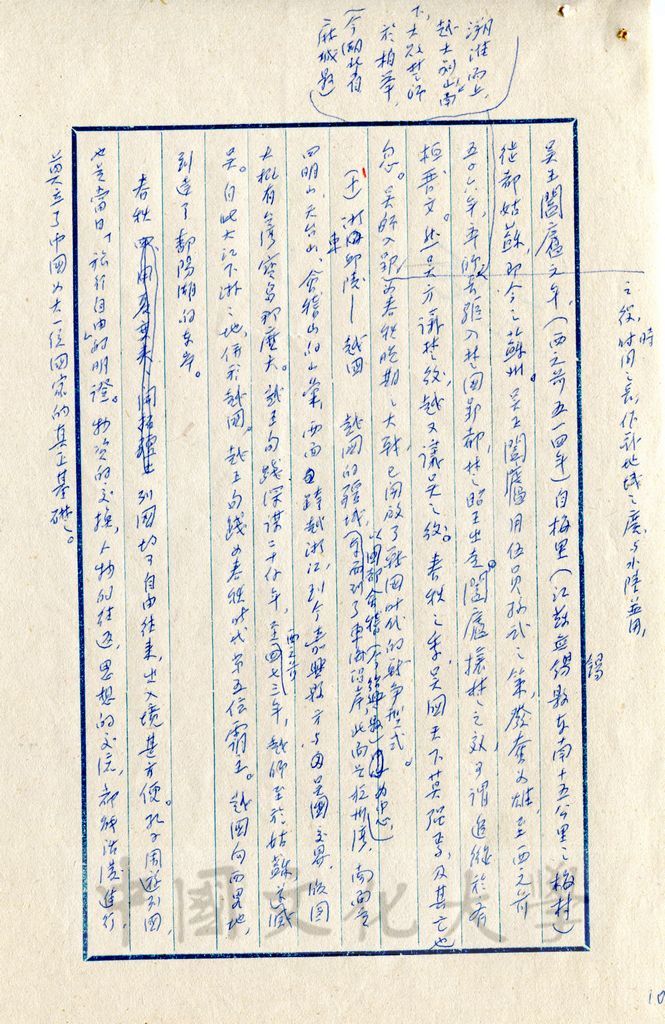 溯淮而上,
於柏舉,
(今湖北省
麻城縣)
吳王闔廬元年,(西元前五一四年)自梅里(江蘇無錫縣東南十五公里之梅村)
徙都姑蘇,即今之蘇州。吳王闔廬用伍員孫武之策,發奮為雄,至西元前
五〇六年,吳師長驅入楚國郢都,楚昭王出走。闔廬攘楚之效,可謂追蹤於齊
桓晉文。然吳方謀楚,越又議吳之後。春秋之季,吳國天下莫強焉,及其亡也
忽。吳師入郢為春秋晚期之大戰,已開啟了戰國時代的戰爭型式。
之役,時間之長,作戰地域之廣,與水陸並用,
(十)浙東 越國 越國的疆域,以國都會稽(今紹興縣)為中心,東到了東海沿岸,北面是杭州灣,南面是
四明山、天台山、會稽山的山叢,西面跨越浙江,到今嘉興縣方與吳國交界,版圖
大概有台灣寶島那麼大。越王句踐深謀二十餘年,至西元前四七三年,越師至於姑蘇,遂滅
吳。自此大江下游之地,併於越國。越王句踐為春秋時代第五位霸主。越國向西略地,
到達了鄱陽湖的東岸。
春秋 列國均可自由往來,出入境甚方便。孔子周遊列國,
也是當日旅行自由的明證。物資的交換,人物的往返,思想的交流,都能活潑進行,
奠立了中國為大一統國家的真正基礎。
10
中國文化大學